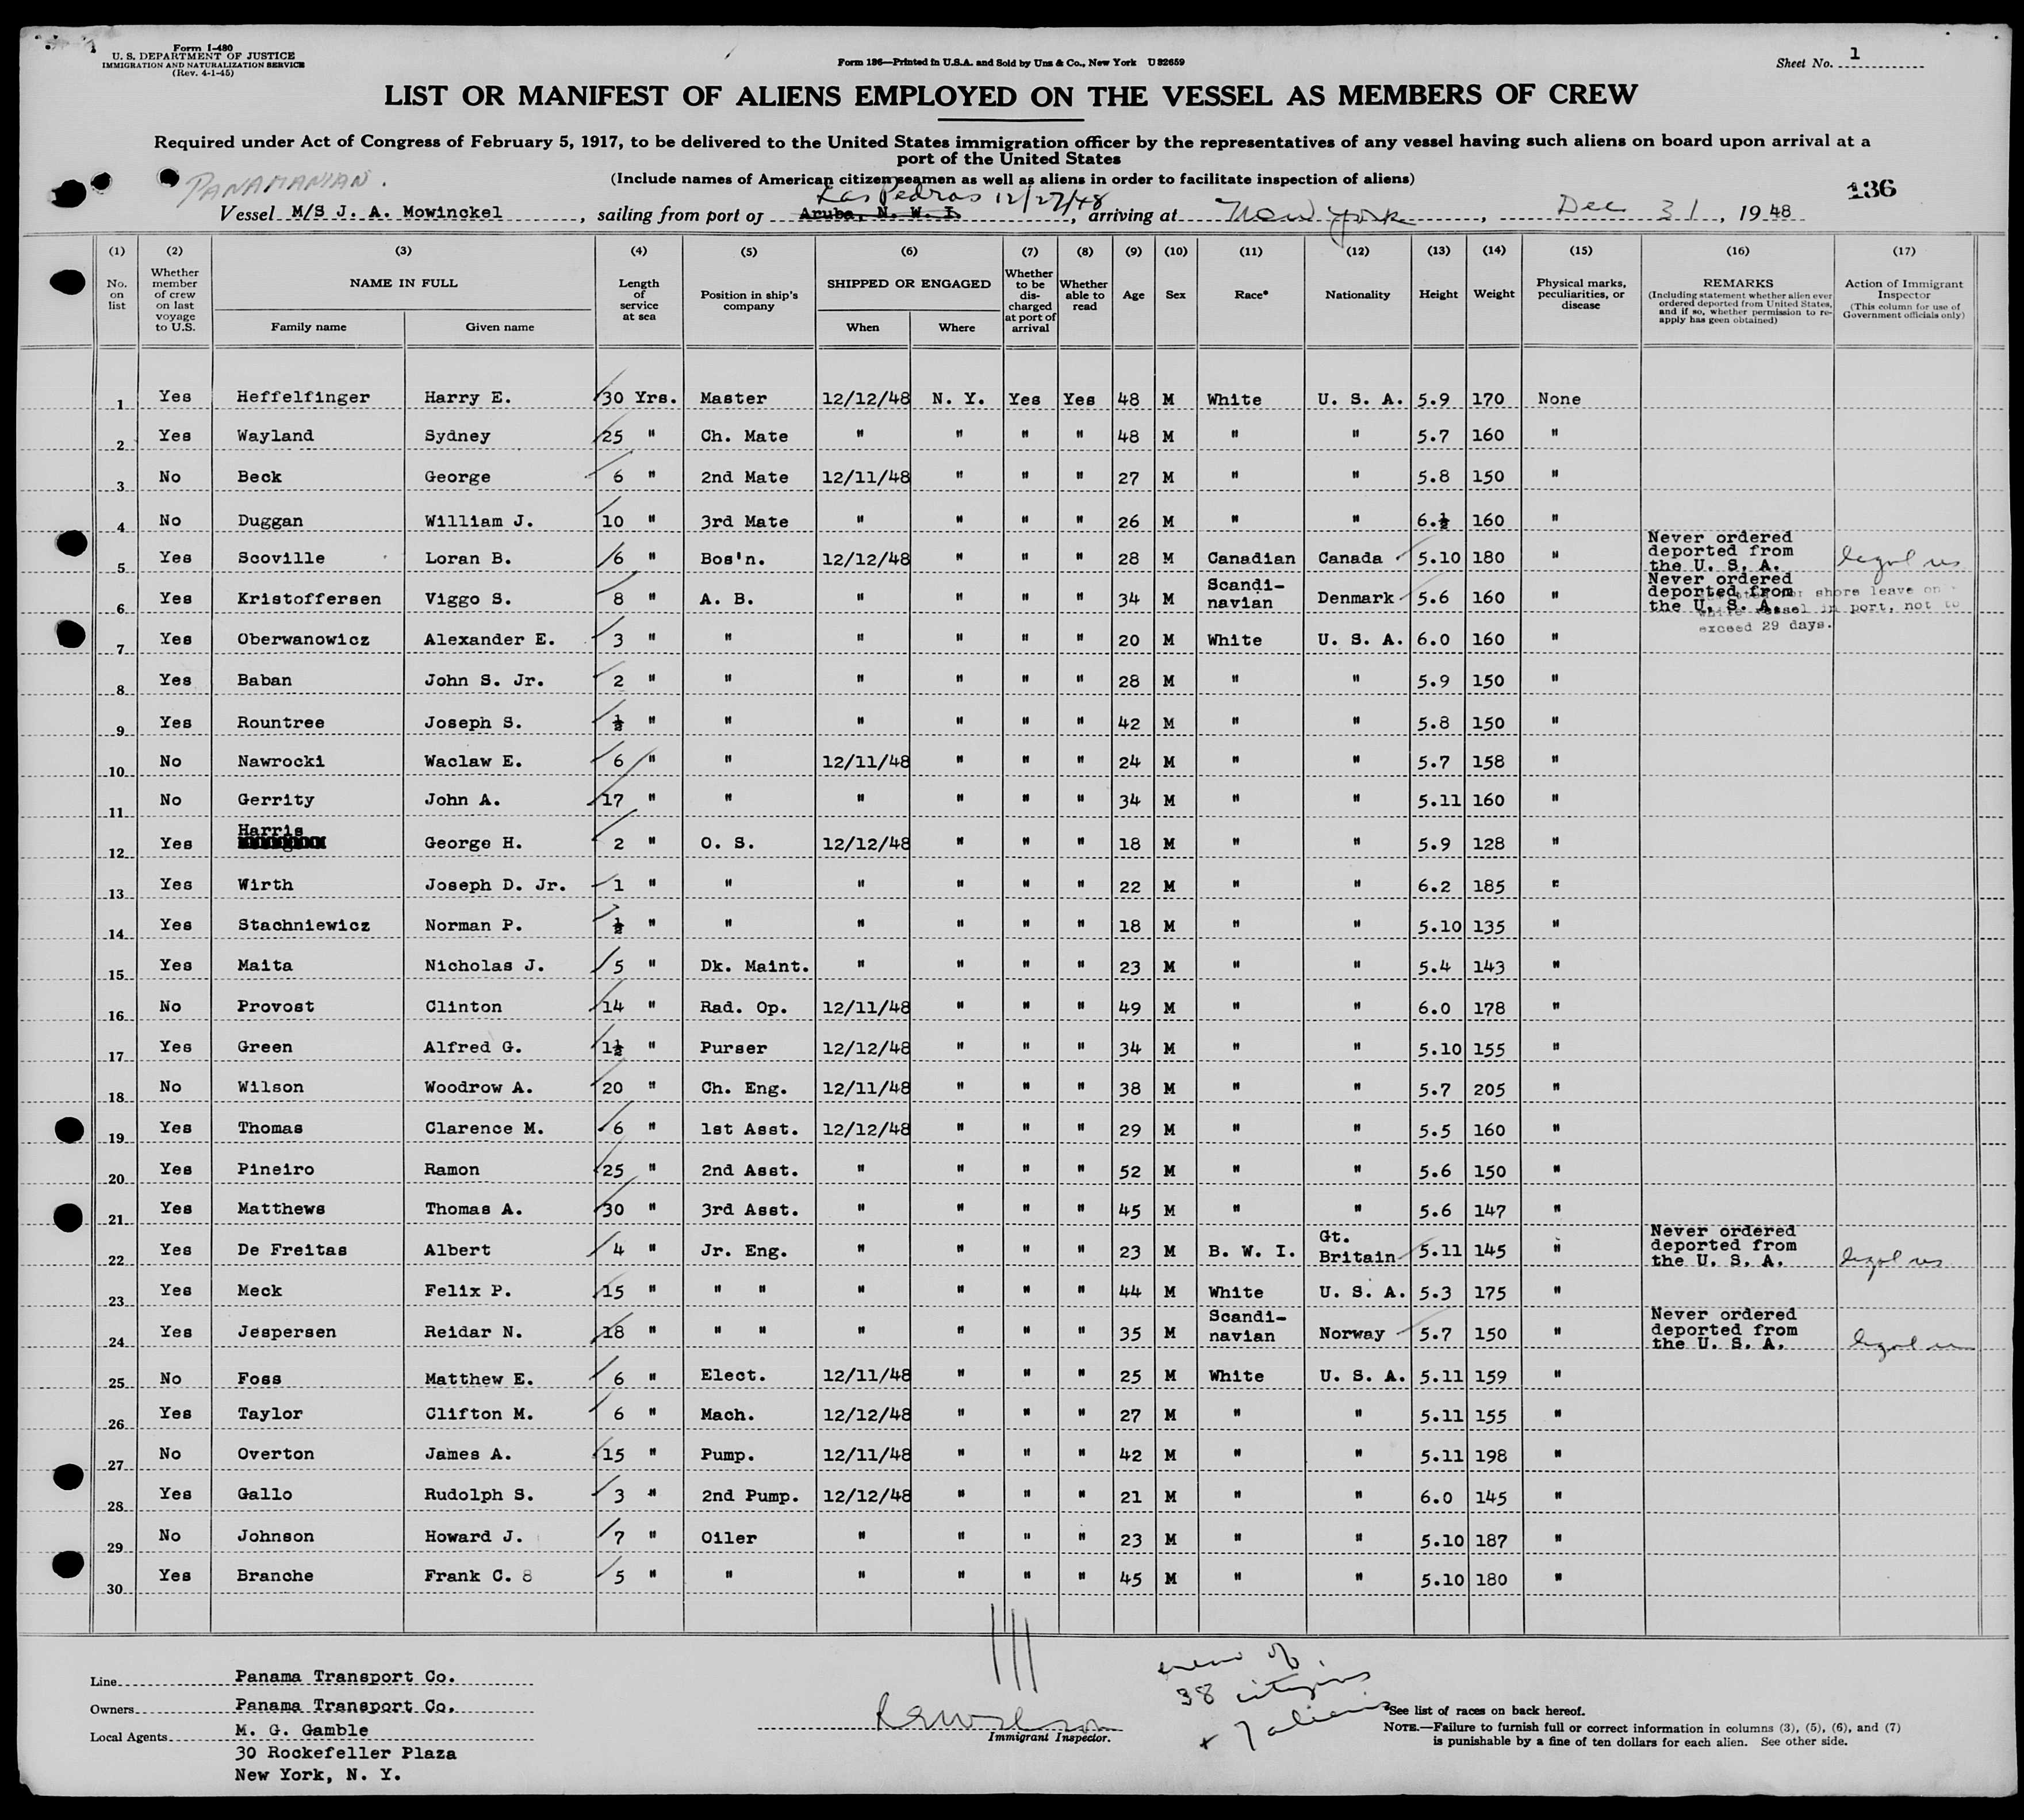 Form I-480
U. S. DEPARTMENT OF JUSTICE
IMMIGRATION AND NATURALIZATION SERVICE
(Rev. 4-1-45)
Form 136—Printed in U.S.A. and Sold by Unz & Co., New York U 82659
Sheet No. 1
LIST OR MANIFEST OF ALIENS EMPLOYED ON THE VESSEL AS MEMBERS OF CREW
Required under Act of Congress of February 5, 1917, to be delivered to the United States immigration officer by the representatives of any vessel having such aliens on board upon arrival at a
port of the United States
(Include names of American citizen seamen as well as aliens in order to facilitate inspection of aliens)
PANAMANIAN.
Las Pedras 12/27/48
136
Vessel M/S J. A. Mowinckel, sailing from port of Aruba, N. W. I., arriving at New York, Dec 31, 1948
(1) (2) (3) (4) (5) (6) (7) (8) (9) (10) (11) (12) (13) (14) (15) (16) (17)
No. on list
Whether member of crew on last voyage to U.S.
NAME IN FULL
Family name Given name
Length of service at sea
Position in ship's company
SHIPPED OR ENGAGED
When Where
Whether to be discharged at port of arrival
Whether able to read
Age
Sex
Race*
Nationality
Height
Weight
Physical marks, peculiarities, or disease
REMARKS
(Including statement whether alien ever ordered deported from United States, and if so, whether permission to re-apply has geen obtained)
Action of Immigrant Inspector
(This column for use of Government officials only)
1 Yes Heffelfinger Harry E. 30 Yrs. Master 12/12/48 N. Y. Yes Yes 48 M White U. S. A. 5.9 170 None
2 Yes Wayland Sydney 25 " Ch. Mate " " " " 48 M " " 5.7 160 "
3 No Beck George 6 " 2nd Mate 12/11/48 " " " 27 M " " 5.8 150 "
4 No Duggan William J. 10 " 3rd Mate " " " " 26 M " " 6.½ 160 "
5 Yes Scoville Loran B. 6 " Bos'n. 12/12/48 " " " 28 M Canadian Canada 5.10 180 " Never ordered deported from the U. S. A. legal res
6 Yes Kristoffersen Viggo S. 8 " A. B. " " " " 34 M Scandi-navian Denmark 5.6 160 " Never ordered deported from the U. S. A.
shore leave on
while vessel in port, not to
exceed 29 days.
7 Yes Oberwanowicz Alexander E. 3 " " " " " " 20 M White U. S. A. 6.0 160 "
8 Yes Baban John S. Jr. 2 " " " " " " 28 M " " 5.9 150 "
9 Yes Rountree Joseph S. ½ " " " " " " 42 M " " 5.8 150 "
10 No Nawrocki Waclaw E. 6 " " 12/11/48 " " " 24 M " " 5.7 158 "
11 No Gerrity John A. 17 " " " " " " 34 M " " 5.11 160 "
12 Yes Harris George H. 2 " O. S. 12/12/48 " " " 18 M " " 5.9 128 "
13 Yes Wirth Joseph D. Jr. 1 " " " " " " 22 M " " 6.2 185 "
14 Yes Stachniewicz Norman P. ½ " " " " " " 18 M " " 5.10 135 "
15 Yes Maita Nicholas J. 5 " Dk. Maint. " " " " 23 M " " 5.4 143 "
16 No Provost Clinton 14 " Rad. Op. 12/11/48 " " " 49 M " " 6.0 178 "
17 Yes Green Alfred G. 1½ " Purser 12/12/48 " " " 34 M " " 5.10 155 "
18 No Wilson Woodrow A. 20 " Ch. Eng. 12/11/48 " " " 38 M " " 5.7 205 "
19 Yes Thomas Clarence M. 6 " 1st Asst. 12/12/48 " " " 29 M " " 5.5 160 "
20 Yes Pineiro Ramon 25 " 2nd Asst. " " " " 52 M " " 5.6 150 "
21 Yes Matthews Thomas A. 30 " 3rd Asst. " " " " 45 M " " 5.6 147 "
22 Yes De Freitas Albert 4 " Jr. Eng. " " " " 23 M B. W. I. Gt. Britain 5.11 145 " Never ordered deported from the U. S. A. legal res
23 Yes Meck Felix P. 15 " " " " " " " 44 M White U. S. A. 5.3 175 "
24 Yes Jespersen Reidar N. 18 " " " " " " " 35 M Scandi-navian Norway 5.7 150 " Never ordered deported from the U. S. A. legal res
25 No Foss Matthew E. 6 " Elect. 12/11/48 " " " 25 M White U. S. A. 5.11 159 "
26 Yes Taylor Clifton M. 6 " Mach. 12/12/48 " " " 27 M " " 5.11 155 "
27 No Overton James A. 15 " Pump. 12/11/48 " " " 42 M " " 5.11 198 "
28 Yes Gallo Rudolph S. 3 " 2nd Pump. 12/12/48 " " " 21 M " " 6.0 145 "
29 No Johnson Howard J. 7 " Oiler " " " " 23 M " " 5.10 187 "
30 Yes Branche Frank C. 8 5 " " " " " " 45 M " " 5.10 180 "
Line Panama Transport Co.
Owners Panama Transport Co.
Local Agents M. G. Gamble
30 Rockefeller Plaza
New York, N. Y.
Immigrant Inspector.
crew of
38 citizens
+ 7 aliens
*See list of races on back hereof.
NOTE.—Failure to furnish full or correct information in columns (3), (5), (6), and (7)
is punishable by a fine of ten dollars for each alien. See other side.